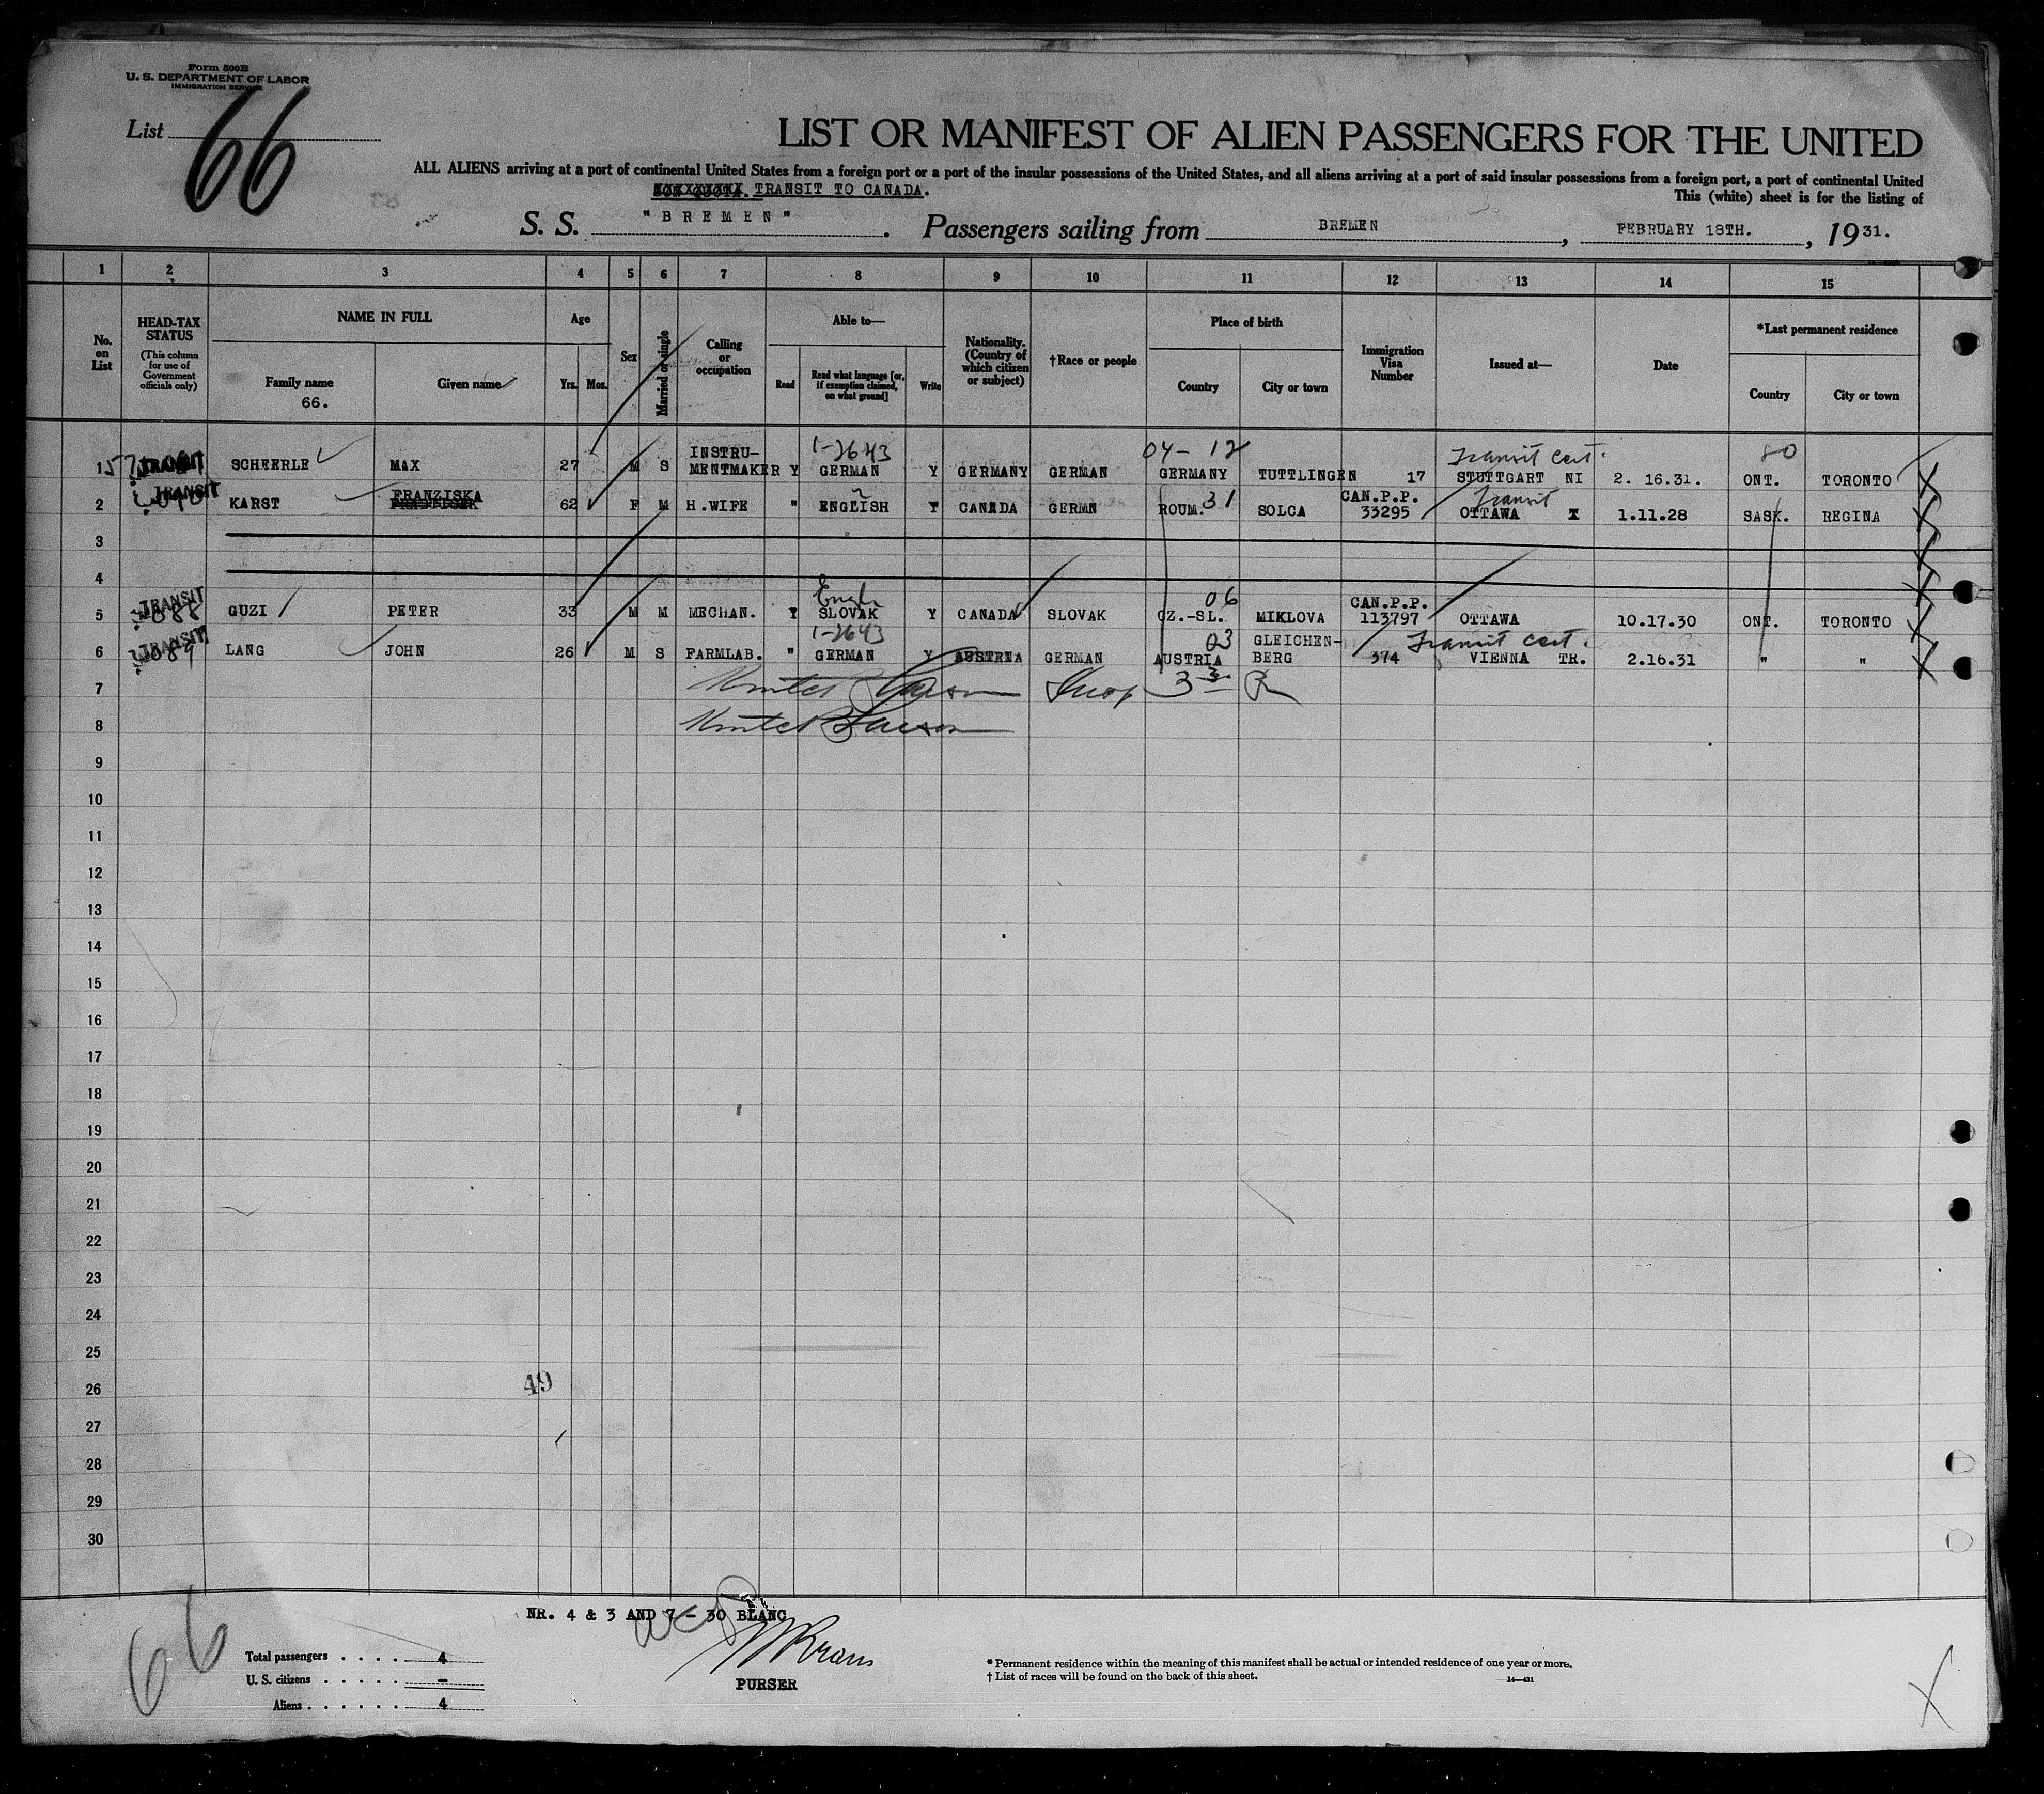 Form 500B
U. S. DEPARTMENT OF LABOR
IMMIGRATION SERVICE
List 66
LIST OR MANIFEST OF ALIEN PASSENGERS FOR THE UNITED
ALL ALIENS arriving at a port of continental United States from a foreign port or a port of the insular possessions of the United States, and all aliens arriving at a port of said insular possessions from a foreign port, a port of continental United
TRANSIT TO CANADA.
This (white) sheet is for the listing of
S. S. "BREMEN". Passengers sailing from BREMEN, FEBRUARY 18TH., 1931.
1 2 3 4 5 6 7 8 9 10 11 12 13 14 15
No. on List
HEAD-TAX STATUS
(This column for use of Government officials only)
NAME IN FULL
Family name
66.
Given name
Age
Yrs. Mos.
Sex
Married or single
Calling or occupation
Able to—
Read
Read what language [or, if exemption claimed, on what ground]
Write
Nationality. (Country of which citizen or subject)
†Race or people
Place of birth
Country
City or town
Immigration Visa Number
Issued at—
Date
*Last permanent residence
Country
City or town
1-2643 04-12 Transit Cert. 80
1 TRANSIT SCHEERLE MAX 27 M S INSTRU-MENTMAKER Y GERMAN Y GERMANY GERMAN GERMANY TUTTLINGEN 17 STUTTGART NI 2. 16.31. ONT. TORONTO
2 TRANSIT KARST FRANZISKA 62 F M H.WIFE " ENGLISH Y CANADA GERMN ROUM. 31 SOLCA CAN.P.P. 33295 Transit OTTAWA X 1.11.28 SASK. REGINA
3
4
5 TRANSIT 088 GUZI PETER 33 M M MECHAN. Y Engl. SLOVAK Y CANADA SLOVAK 06 CZ.-SL. MIKLOVA CAN.P.P. 113797 OTTAWA 10.17.30 ONT. TORONTO
6 TRANSIT 089 LANG JOHN 26 M S FARMLAB. " 1-2643 GERMAN Y AUSTRIA GERMAN 03 AUSTRIA GLEICHEN-BERG 374 Transit Cert. VIENNA TR. 2.16.31 " "
7
8
9
10
11
12
13
14
15
16
17
18
19
20
21
22
23
24
25
26
49
27
28
29
30
NR. 4 & 3 AND 7 - 30 BLANC
66
Total passengers . . . . 4
U. S. citizens . . . . . -
Aliens . . . . . . 4
PURSER
* Permanent residence within the meaning of this manifest shall be actual or intended residence of one year or more.
† List of races will be found on the back of this sheet.
14—431